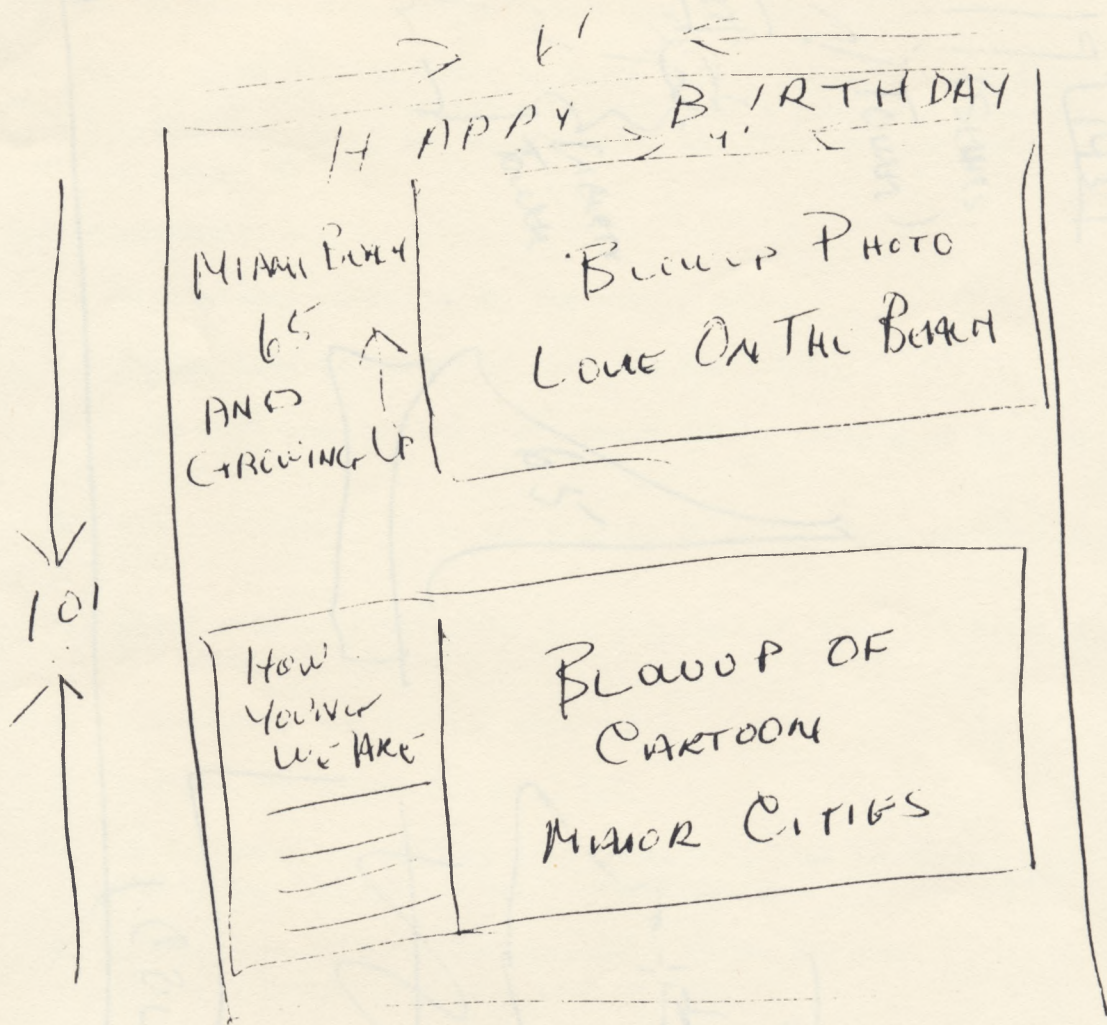 6'
HAPPY BIRTHDAY
4'
MIAMI BEACH
65
AND
GROWING UP
BLOWUP PHOTO
LOVE ON THE BEACH
10'
HOW
YOUNG
WE ARE
BLOWUP OF
CARTOON
MAJOR CITIES